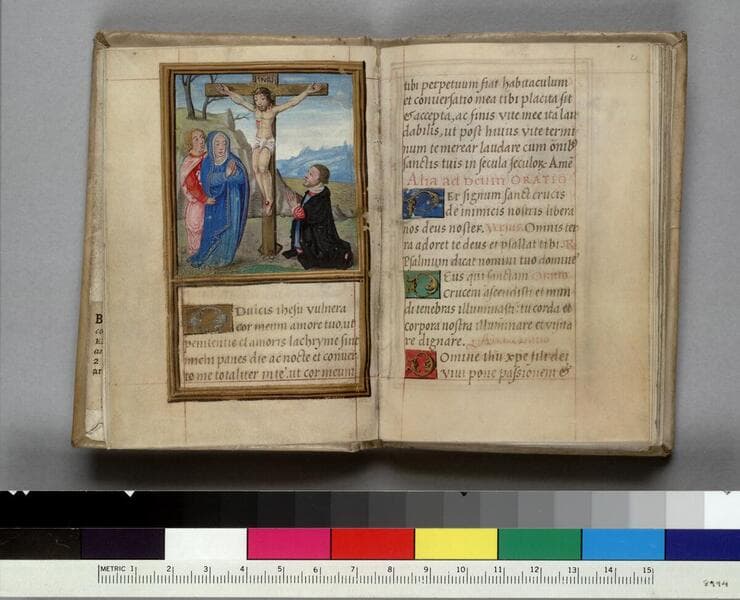 INRI
Dulcis ihesu vulnera
cor meum amore tuo, ut
penitentie et amoris lachryme sint
michi panes die ac nocte et conuer
to me totaliter in te. ut cor meum
tibi perpetuum fiat habitaculum
et conuersatio mea tibi placita sit
& accepta, ac finis vite mee ita lau
dabilis, ut post huius vite termi
num te merear laudare cum omnib
sanctis tuis in secula seculor. Amē
Alia ad Deum ORATIO
Per signum sancte crucis
de inimicis nostris libera
nos deus noster. Versus. Omnis ter
ra adoret te deus et psallat tibi. R
Psalmum dicat nomini tuo domine
Deus qui sanctam Oratio
crucem ascendisti et mun
di tenebras illuminasti: tu corda et
corpora nostra illuminare et visita
re dignare.
Domine ihu xpe fili dei
viui pone passionem &
B
METRIC 1 2 3 4 5 6 7 8 9 10 11 12 13 14 15